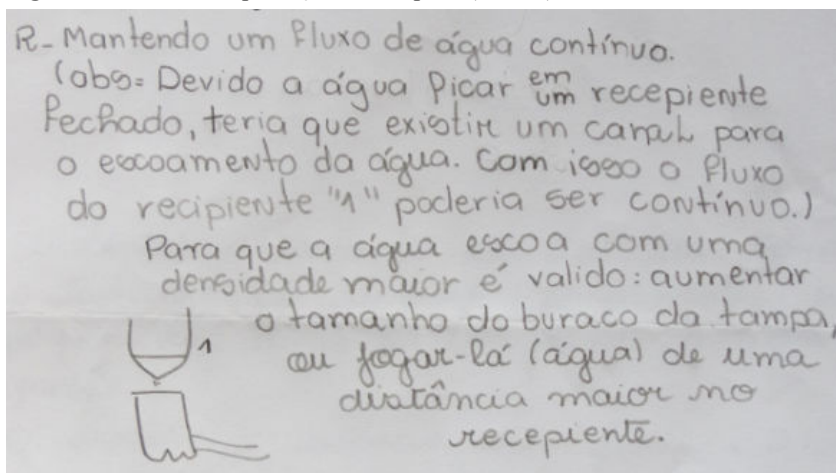 R- Mantendo um fluxo de água contínuo.
(obs= Devido a água ficar em um recepiente
fechado, teria que existir um canal para
o escoamento da água. Com isso o fluxo
do recipiente "1" poderia ser contínuo.)
Para que a água escoa com uma
densidade maior é valido: aumentar
o tamanho do buraco da tampa,
ou jogar-lá (água) de uma
distância maior no
recepiente.
1